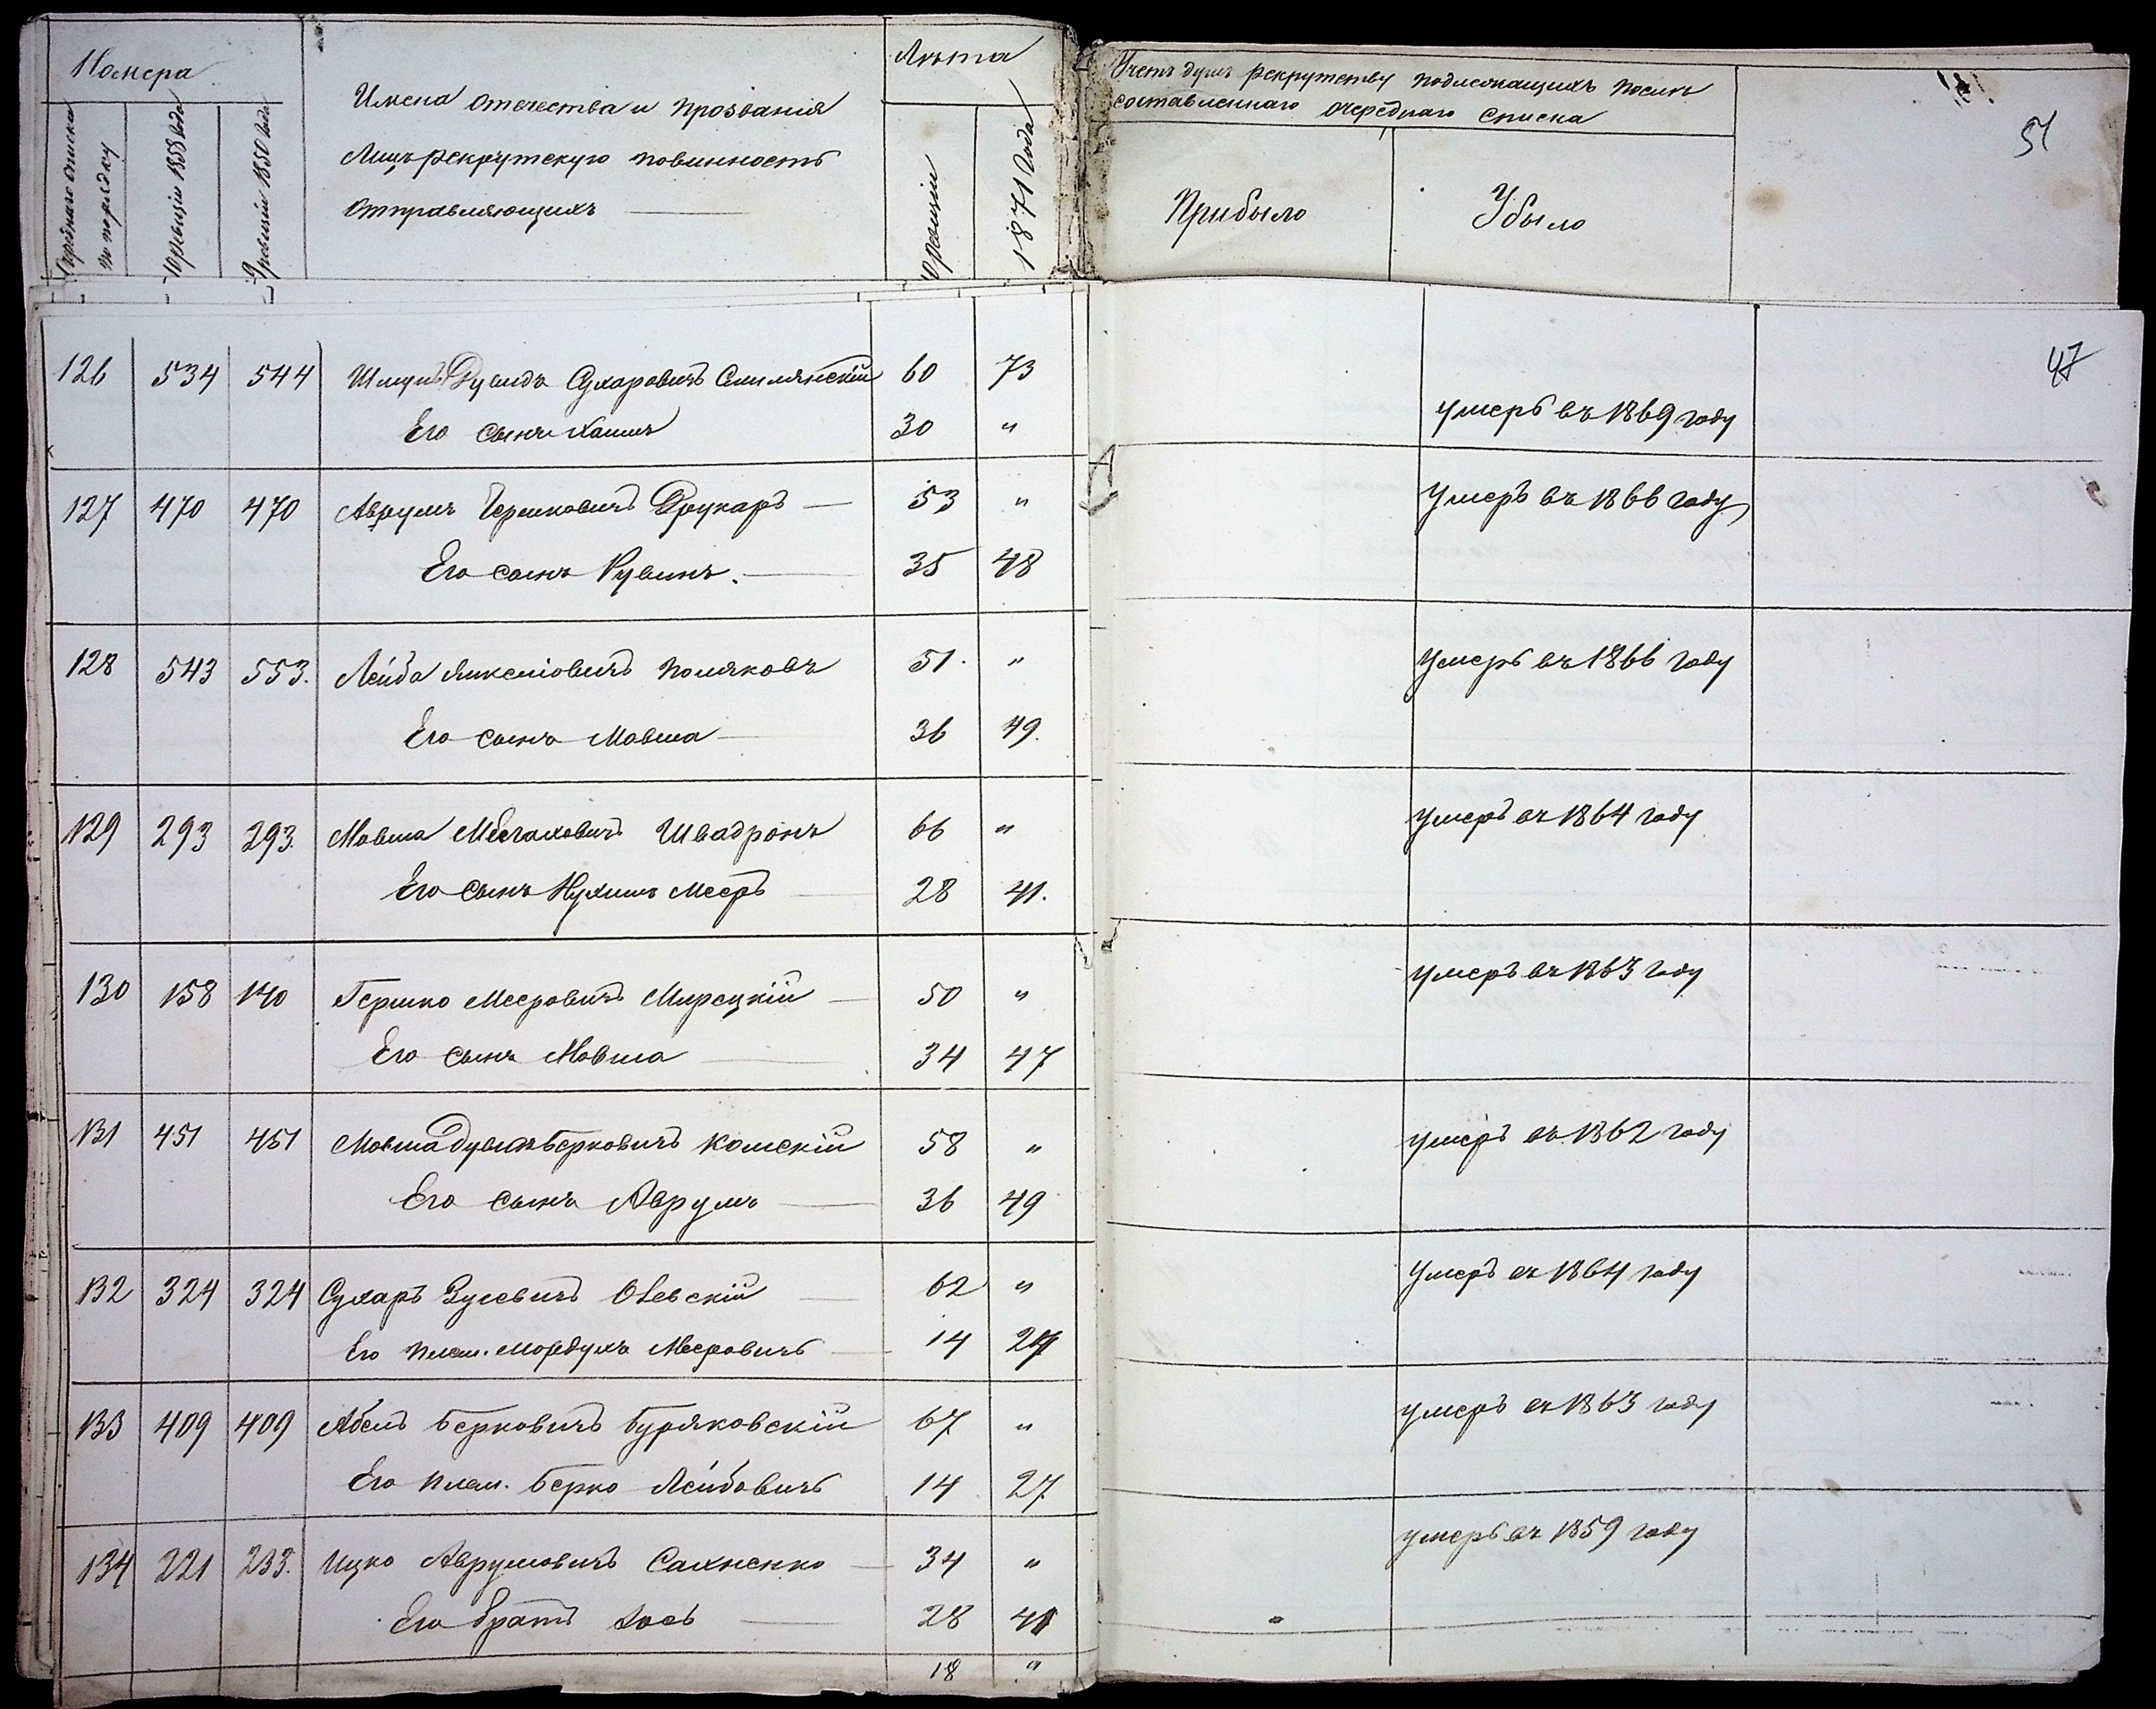 Номера
Очереднаго списка по порядку
10 ревизіи 1858 года
9 ревизіи 1850 года
Имена отечества и прозванія
Лицъ рекрутскую повинность
отправляющихъ
Лѣта
10 ревизіи
1871 года
Учетъ душъ рекрутству подлежащихъ послѣ
составленнаго очереднаго списка
Прибыло
Убыло
51
47
126 534 544 Шмуль Дувидъ Сухаровичъ Смилянскій 60 73
Его сынъ Хаимъ 30 " умеръ въ 1869 году
127 470 470 Аврумъ Гершковичъ Друкаръ 53 " Умеръ въ 1866 году
Его сынъ Рувинъ. 35 48
128 543 553. Лейба Поляковъ 51. " Умеръ въ 1866 году
Его сынъ Мовша 36 49.
129 293 293. Мовша Швадронъ 66 " Умеръ въ 1864 году
Его сынъ Нухимъ Мееръ 28 41.
130 158 140 Гершко Мееровичъ Мирецкій 50 " умеръ въ 1863 году
Его сынъ Мовша 34 47
131 451 451 Мовша Дувидъ Берковичъ Комскій 58 " умеръ въ 1862 году
Его сынъ Аврумъ 36 49
132 324 324 Сухаръ Зусевичъ Олевскій 62 " Умеръ въ 1864 году
Его плем. Мордухъ Мееровичъ 14 27
133 409 409 Абель Берковичъ Буряковскій 67 " умеръ въ 1863 году
Его плем. Берко Лейбовичъ 14 27
134 221 233. Ицко Аврумовичъ Сахненко 34 " умеръ въ 1859 году
Его братъ Іось 28 41
18 "